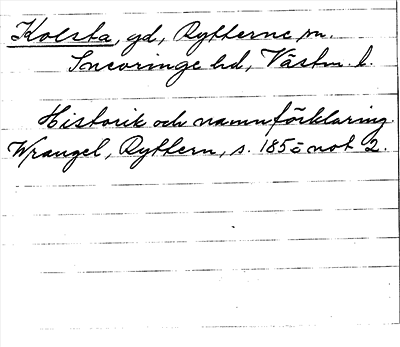 Kolsta, gd, Rytterne sn.
Snevringe hd, Västm. l.
Historik och namnförklaring.
Wrangel, Ryttern, s. 185 o not 2.